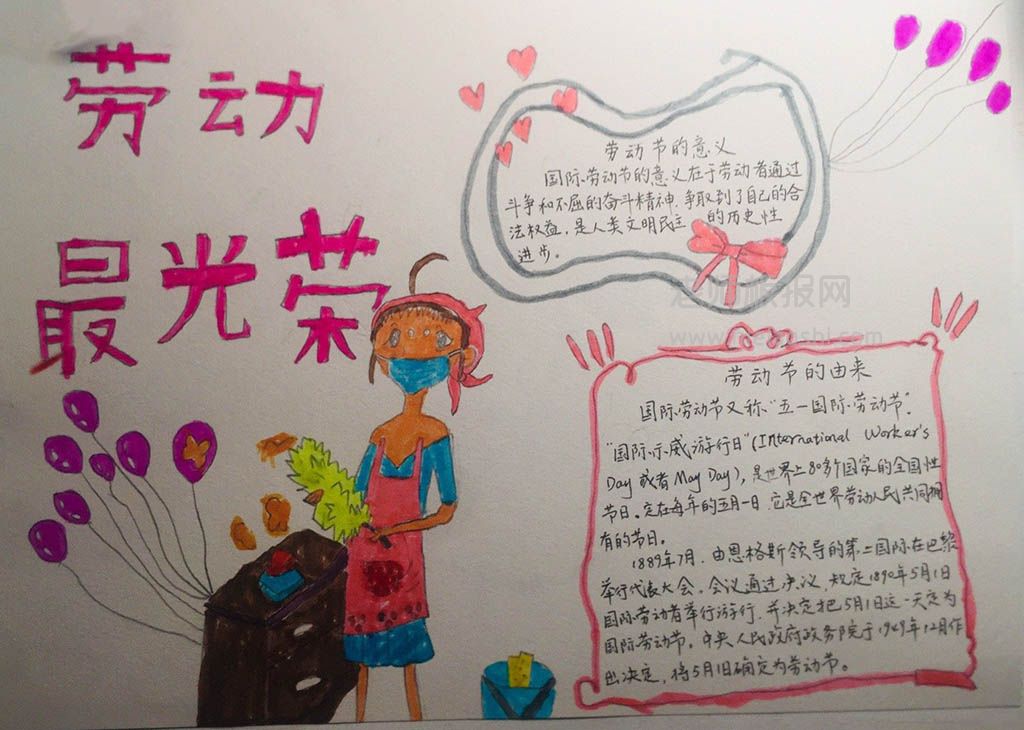 劳动
最光荣
劳动节的意义
国际劳动节的意义在于劳动者通过
斗争和不屈的奋斗精神.争取到了自己的合
法权益,是人类文明民主 的历史性
进步。
劳动节的由来
国际劳动节又称“五一国际劳动节”.
“国际示威游行日”(International Worker's
Day 或者 May Day),是世界上80多个国家的全国性
节日。定在每年的五月一日.它是全世界劳动人民共同拥
有的节日。
1889年7月.由恩格斯领导的第二国际在巴黎
举行代表大会。会议通过决议.规定1890年5月1日
国际劳动者举行游行.并决定把5月1日这一天定为
国际劳动节。中央人民政府政务院于1949年12月作
出决定,将5月1日确定为劳动节。